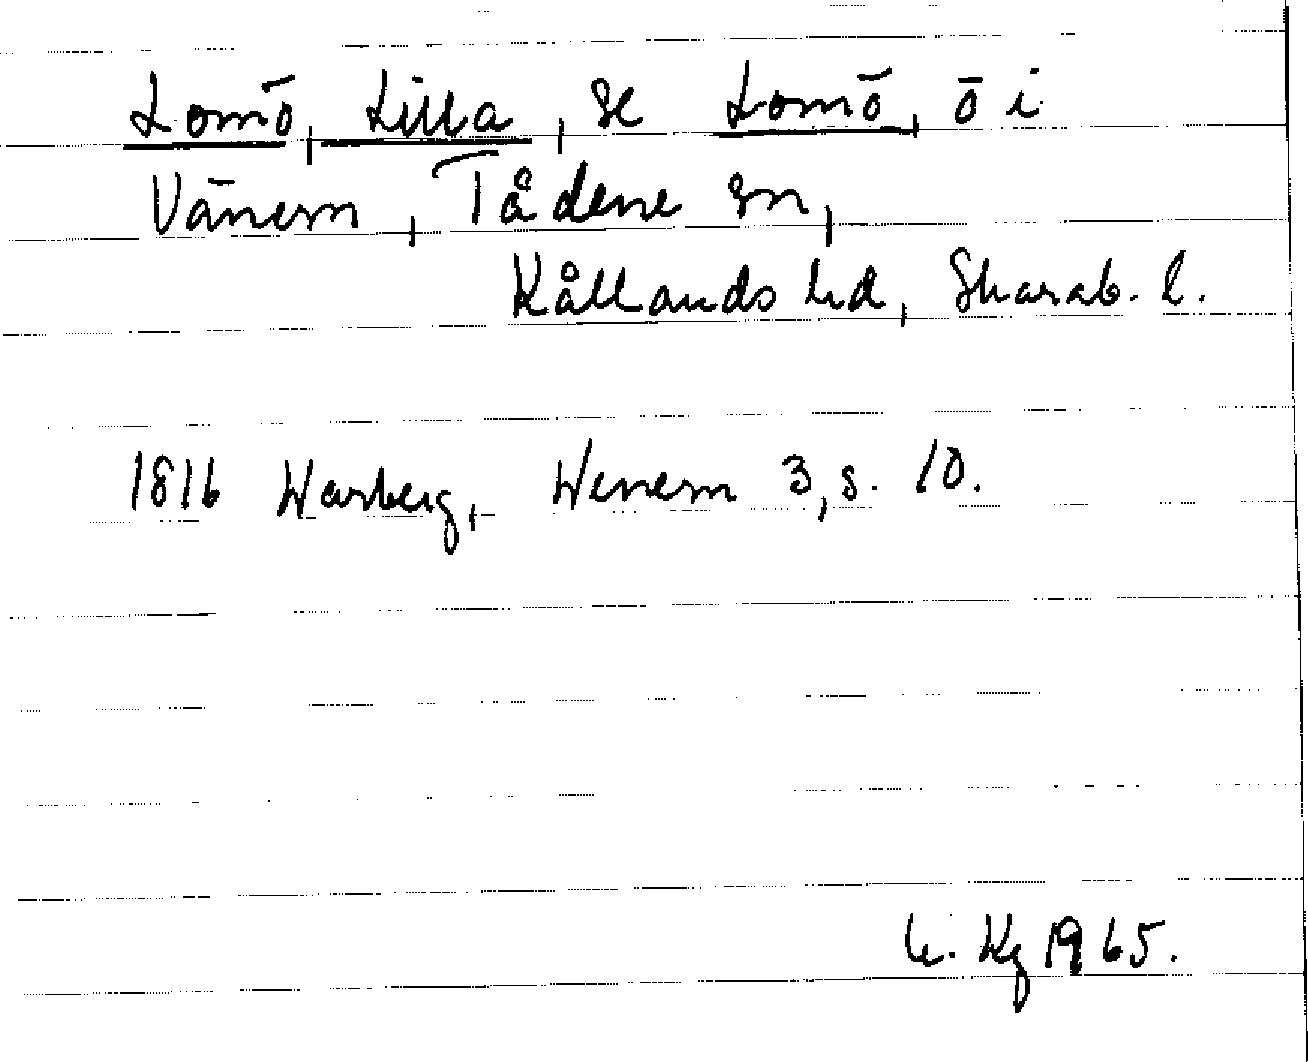 Lomö, Lilla, se Lomö, ö i
Vänern, Tådene sn,
Kållands hd, Skarab. l.
1816 Warberg, Wenern 3, s. 10.
Kg 1965.